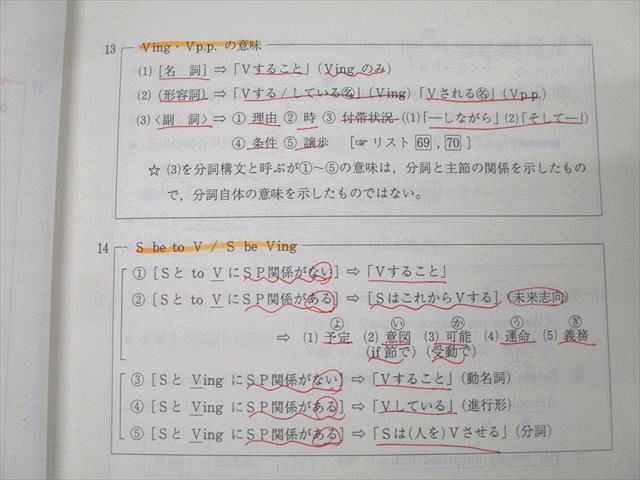 13 Ving・Vp.p. の意味
(1) [名 詞] ⇨「Vすること」(Ving のみ)
(2) (形容詞) ⇨「Vする/している㊔」(Ving)「Vされる㊔」(Vp.p.)
(3)〈副 詞〉⇨ ① 理由 ② 時 ③ 付帯状況 ((1)「―しながら」(2)「そして―」)
④ 条件 ⑤ 譲歩 [☞ リスト 69 , 70 ]
☆ (3)を分詞構文と呼ぶが①～⑤の意味は，分詞と主節の関係を示したもの
で，分詞自体の意味を示したものではない。
14 S be to V / S be Ving
① [S と to V にSP関係がない] ⇨「Vすること」
② [S と to V にSP関係がある] ⇨ [Sはこれから Vする] (未来志向)
よ い か う ぎ
⇨ (1) 予定 (2) 意図 (3) 可能 (4) 運命 (5) 義務
(if 節で) (受動で)
③ [S と Ving にSP関係がない] ⇨「Vすること」(動名詞)
④ [S と Ving にSP関係がある] ⇨「Vしている」(進行形)
⑤ [S と Ving にSP関係がある] ⇨「Sは(人を)Vさせる」(分詞)